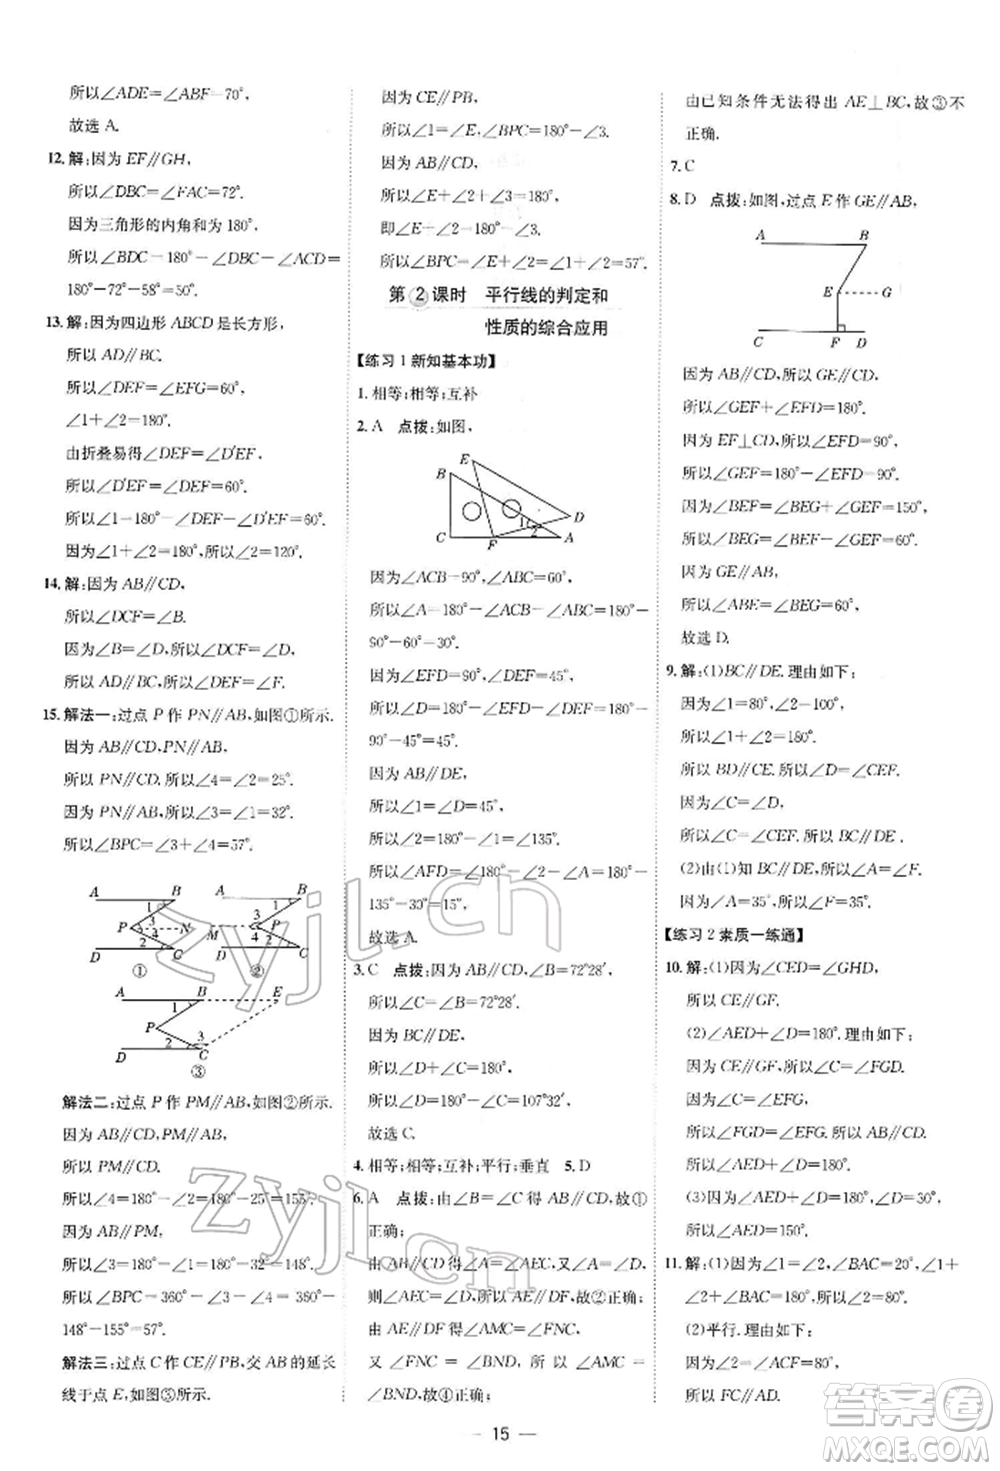 所以∠ADE=∠ABF=70°,
故选 A.
12. 解:因为 EF∥GH,
所以∠DBC=∠FAC=72°.
因为三角形的内角和为 180°,
所以∠BDC=180°-∠DBC-∠ACD=
180°-72°-58°=50°.
13. 解:因为四边形 ABCD 是长方形,
所以 AD∥BC.
所以∠DEF=∠EFG=60°,
∠1+∠2=180°.
由折叠易得∠DEF=∠D′EF,
所以∠D′EF=∠DEF=60°.
所以∠1=180°-∠DEF-∠D′EF=60°.
因为∠1+∠2=180°,所以∠2=120°.
14. 解:因为 AB∥CD,
所以∠DCF=∠B.
因为∠B=∠D,所以∠DCF=∠D.
所以 AD∥BC,所以∠DEF=∠F.
15. 解法一:过点 P 作 PN∥AB,如图①所示.
因为 AB∥CD,PN∥AB,
所以 PN∥CD.所以∠4=∠2=25°.
因为 PN∥AB,所以∠3=∠1=32°.
所以∠BPC=∠3+∠4=57°.
A B 1 P 3 4 N 2 D C ①
A B 1 3 M P 4 2 D C ②
A B E 1 P 3 2 D C ③
解法二:过点 P 作 PM∥AB,如图②所示.
因为 AB∥CD,PM∥AB,
所以 PM∥CD.
所以∠4=180°-∠2=180°-25°=155°.
因为 AB∥PM,
所以∠3=180°-∠1=180°-32°=148°.
所以∠BPC=360°-∠3-∠4=360°-
148°-155°=57°.
解法三:过点 C 作 CE∥PB,交 AB 的延长
线于点 E,如图③所示.
因为 CE∥PB,
所以∠1=∠E,∠BPC=180°-∠3.
因为 AB∥CD,
所以∠E+∠2+∠3=180°,
即∠E+∠2=180°-∠3.
所以∠BPC=∠E+∠2=∠1+∠2=57°.
第 2 课时 平行线的判定和
性质的综合应用
【练习 1 新知基本功】
1. 相等;相等;互补
2. A 点拨:如图,
E B D 1 2 C F A
因为∠ACB=90°,∠BAC=60°,
所以∠A=180°-∠ACB-∠BAC=180°-
90°-60°=30°.
因为∠EFD=90°,∠DEF=45°,
所以∠D=180°-∠EFD-∠DEF=180°-
90°-45°=45°.
因为 AB∥DE,
所以∠1=∠D=45°,
所以∠2=180°-∠1=135°.
所以∠AFD=180°-∠2-∠BAC=180°-
135°-30°=15°,
故选 A.
3. C 点拨:因为 AB∥CD,∠B=72°28′,
所以∠C=∠B=72°28′.
因为 BC∥DE,
所以∠C+∠D=180°,
所以∠D=180°-∠C=107°32′.
故选 C.
4. 相等;相等;互补;平行;垂直 5. D
6. A 点拨:由∠B=∠C 得 AB∥CD,故①
正确;
由 AB∥CD 得∠A=∠AEC,又∠A=∠D,
则∠AEC=∠D,所以 AE∥DF,故②正确;
因为 AE∥DF,所以∠AMC=∠FNC,
又∠FNC=∠BND,所以∠AMC=
∠BND.故④正确;
由已知条件无法得出 AE⊥BC,故③不
正确.
7. C
8. D 点拨:如图,过点 E 作 GE∥AB,
A B E G C F D
因为 AB∥CD,所以 GE∥CD.
所以∠GEF+∠EFD=180°.
因为 EF⊥CD,所以∠EFD=90°,
所以∠GEF=180°-∠EFD=90°.
因为∠BEF=∠BEG+∠GEF=150°,
所以∠BEG=∠BEF-∠GEF=60°.
因为 GE∥AB,
所以∠ABE=∠BEG=60°,
故选 D.
9. 解:(1)BC∥DE.理由如下:
因为∠1=80°,∠2=100°,
所以∠1+∠2=180°.
所以 BD∥CE.所以∠D=∠CEF.
因为∠C=∠D,
所以∠C=∠CEF.所以 BC∥DE.
(2)由(1)知 BC∥DE,所以∠A=∠F.
因为∠A=35°,所以∠F=35°.
【练习 2 素质一练通】
10. 解:(1)因为∠CED=∠GHD,
所以 CE∥GF.
(2)∠AED+∠D=180°.理由如下:
因为 CE∥GF,所以∠C=∠FGD.
因为∠C=∠EFG,
所以∠FGD=∠EFG,所以 AB∥CD.
所以∠AED+∠D=180°.
(3)因为∠AED+∠D=180°,∠D=30°,
所以∠AED=150°.
11. 解:(1)因为∠1=∠BAC=20°,∠1+
∠2+∠BAC=180°,所以∠2=140°.
(2)平行.理由如下:
因为∠2=∠ACF=140°,
所以 FC∥AD.
15
zyjl.cn
zyjl.cn
答案卷
MXQE.COM